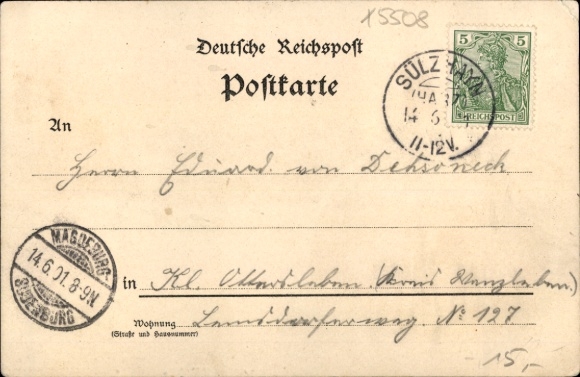 X5508
Deutsche Reichspost
Postkarte
5 5
REICHSPOST
SÜLZHAYN
(HARZ)
14 6
11-12V.
An
Herrn Eduard von
MAGDEBURG-
14.6.01.8-9N.
SUDENBURG
in Kl. Ottersleben (Kreis Wanzleben)
Wohnung Lemsdorferweg No 127
(Straße und Hausnummer)
15,-